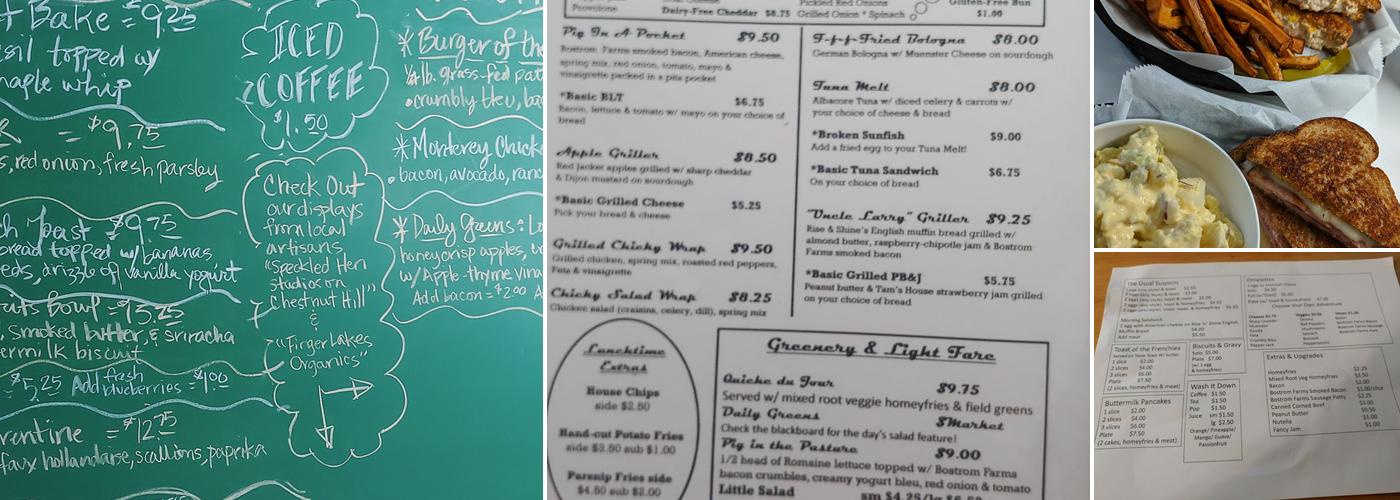 Bake = $9.25
topped w/
maple whip
= $9.75
red onion, fresh parsley
Toast = $9.75
bread topped w/ bananas
drizzle of vanilla yogurt
Bowl = $13.25
smoked butter, & sriracha
biscuit
$5.25 Add fresh blueberries = $1.00
= $12.75
faux hollandaise, scallions, paprika
ICED
COFFEE
$1.50
Check Out
our displays
from local
artisans
"Speckled Hen
Studios on
Chestnut Hill"
&
"Finger Lakes
Organics"
* Burger of the
1/4 lb. grass-fed
crumbly bleu,
* Monterey
bacon, avocado,
* Daily Greens:
honeycrisp apples,
w/ Apple-thyme
Add bacon = $2.00
Provolone
Dairy-Free Cheddar $0.75
Pickled Red Onions
Grilled Onion * Spinach
Gluten-Free Bun
$1.00
Pig In A Pocket $9.50
Bostrom Farms smoked bacon, American cheese,
spring mix, red onion, tomato, mayo &
vinaigrette packed in a pita pocket
*Basic BLT $6.75
Bacon, lettuce & tomato w/ mayo on your choice of
bread
Apple Griller $8.50
Red Jacket apples grilled w/ sharp cheddar
& Dijon mustard on sourdough
*Basic Grilled Cheese $5.25
Pick your bread & cheese
Grilled Chicky Wrap $9.50
Grilled chicken, spring mix, roasted red peppers,
Feta & vinaigrette
Chicky Salad Wrap $8.25
Chicken salad (craisins, celery, dill), spring mix
F-f-f-Fried Bologna $8.00
German Bologna w/ Muenster Cheese on sourdough
Tuna Melt $8.00
Albacore Tuna w/ diced celery & carrots w/
your choice of cheese & bread
*Broken Sunfish $9.00
Add a fried egg to your Tuna Melt!
*Basic Tuna Sandwich $6.75
On your choice of bread
"Uncle Larry" Griller $9.25
Rise & Shine's English muffin bread grilled w/
almond butter, raspberry-chipotle jam & Bostrom
Farms smoked bacon
*Basic Grilled PB&J $5.75
Peanut butter & Tam's House strawberry jam grilled
on your choice of bread
Lunchtime
Extras
House Chips
side $2.50
Hand-cut Potato Fries
side $3.50 sub $1.00
Parsnip Fries side
$4.50 sub $2.00
Greenery & Light Fare
Quiche du Jour $9.75
Served w/ mixed root veggie homefries & field greens
Daily Greens $Market
Check the blackboard for the day's salad feature!
Pig in the Pasture $9.00
1/2 head of Romaine lettuce topped w/ Bostrom Farms
bacon crumbles, creamy yogurt bleu, red onion & tomato
Little Salad sm $4.25/lg $6.50
The Usual Suspects
Morning Sandwich
1 egg with American cheese on Rise 'n' Shine English
Muffin Bread $4.50
Add meat $5.50
Omelettes
Choose Your Own Adventure
Toast of the Frenchies
1 slice $2.00
2 slices $4.00
3 slices $6.00
Plate $7.50
(2 slices, homefries & meat)
Biscuits & Gravy
Solo $5.00
Plate $7.00
(w/ 1 egg
& homefries)
Buttermilk Pancakes
1 slice $2.00
2 slices $4.00
3 slices $6.00
Plate $7.50
(2 cakes, homefries & meat)
Wash It Down
Coffee $1.50
Tea $1.50
Pop $1.50
Juice sm $1.50
lg $2.50
Orange/ Pineapple/
Mango/ Guava/
Passionfruit
Extras & Upgrades
Homefries $2.25
Mixed Root Veg Homefries $3.50
Bacon
Bostrom Farms Smoked Bacon
Bostrom Farms Sausage Patty
Canned Corned Beef
Peanut Butter
Nutella
Fancy Jam $1.00